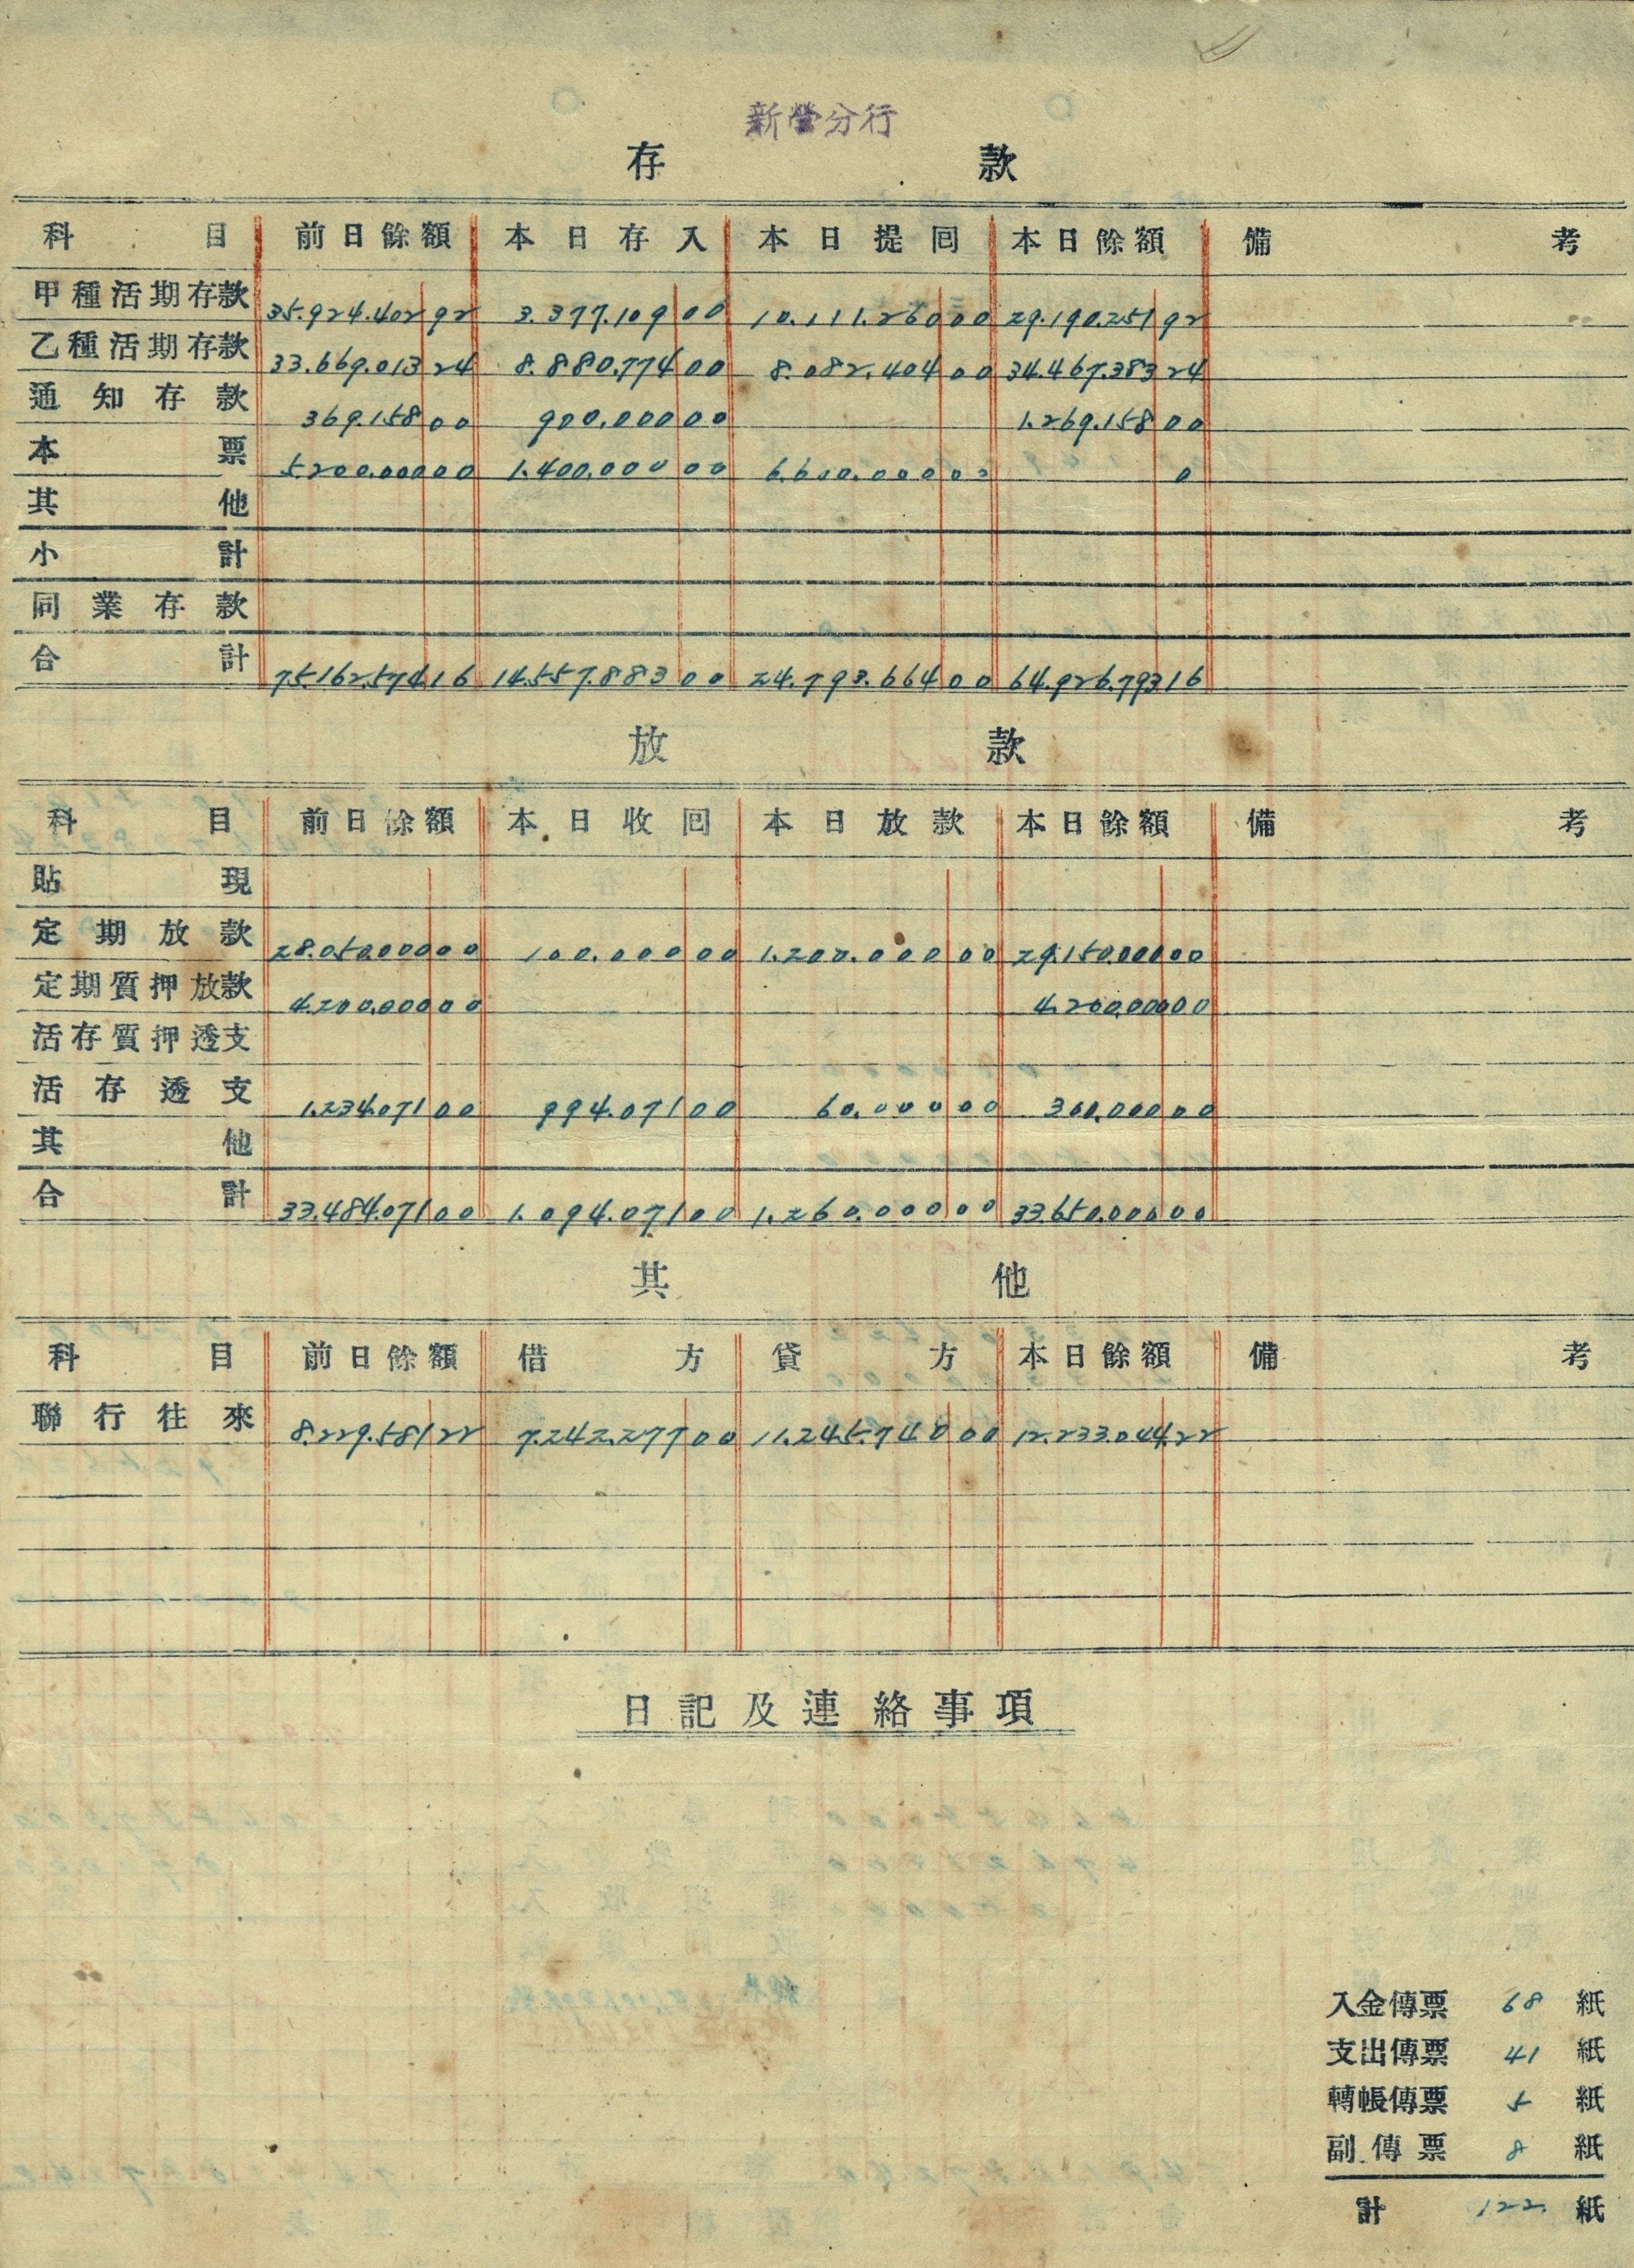 新營分行
存款
科目 前日餘額 本日存入 本日提回 本日餘額 備考
甲種活期存款 35.924.402 92 3.377.109 00 10.111.260 00 29.190.251 92
乙種活期存款 33.669.013 24 8.880.774 00 8.082.404 00 34.467.383 24
通知存款 369.158 00 900.000 00 1.269.158 00
本票 5.200.000 00 1.400.000 00 6.600.000 00 0
其他
小計
同業存款
合計 75.162.574 16 14.557.883 00 24.793.664 00 64.926.793 16
放款
科目 前日餘額 本日收回 本日放款 本日餘額 備考
貼現
定期放款 28.050.000 00 100.000 00 1.200.000 00 29.150.000 00
定期質押放款 4.200.000 00 4.200.000 00
活存質押透支
活存透支 1.234.071 00 994.071 00 60.000 00 300.000 00
其他
合計 33.484.071 00 1.094.071 00 1.260.000 00 33.650.000 00
其他
科目 前日餘額 借方 貸方 本日餘額 備考
聯行往來 8.229.581 22 7.242.277 00 11.245.740 00 12.233.044 22
日記及連絡事項
入金傳票 68 紙
支出傳票 41 紙
轉帳傳票 5 紙
副傳票 8 紙
計 122. 紙